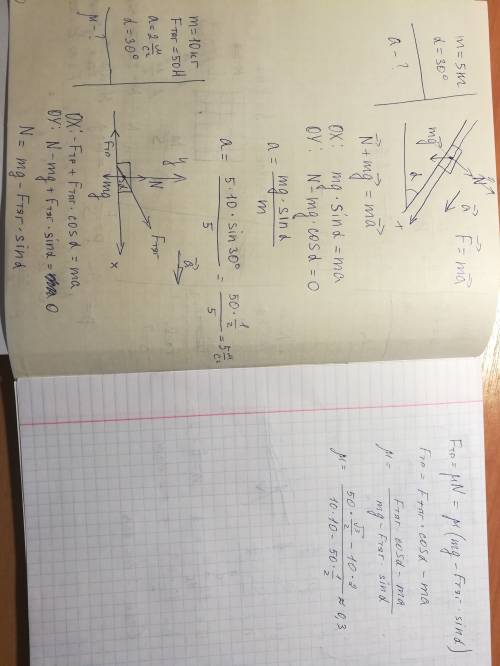 m = 5 кг
α = 30°
a - ?
N
mg
α
x
a
F⃗ = ma⃗
N⃗ + mg⃗ = ma⃗
OX: mg · sinα = ma
OY: N - mg · cosα = 0
a = mg · sinα / m
a = 5 · 10 · sin 30° / 5 = 50 · 1/2 / 5 = 5 м/с²
m = 10 кг
Fтяг = 50 Н
a = 2 м/с²
α = 30°
μ - ?
y
a⃗
N
Fтяг
α
Fтр
mg
x
OX: -Fтр + Fтяг · cosα = ma
OY: N - mg + Fтяг · sinα = 0
N = mg - Fтяг · sinα
Fтр = μN = μ(mg - Fтяг · sinα)
Fтр = Fтяг · cosα - ma
μ = Fтяг · cosα - ma / mg - Fтяг · sinα
μ = 50 · √3/2 - 10 · 2 / 10 · 10 - 50 · 1/2 ≈ 0,3